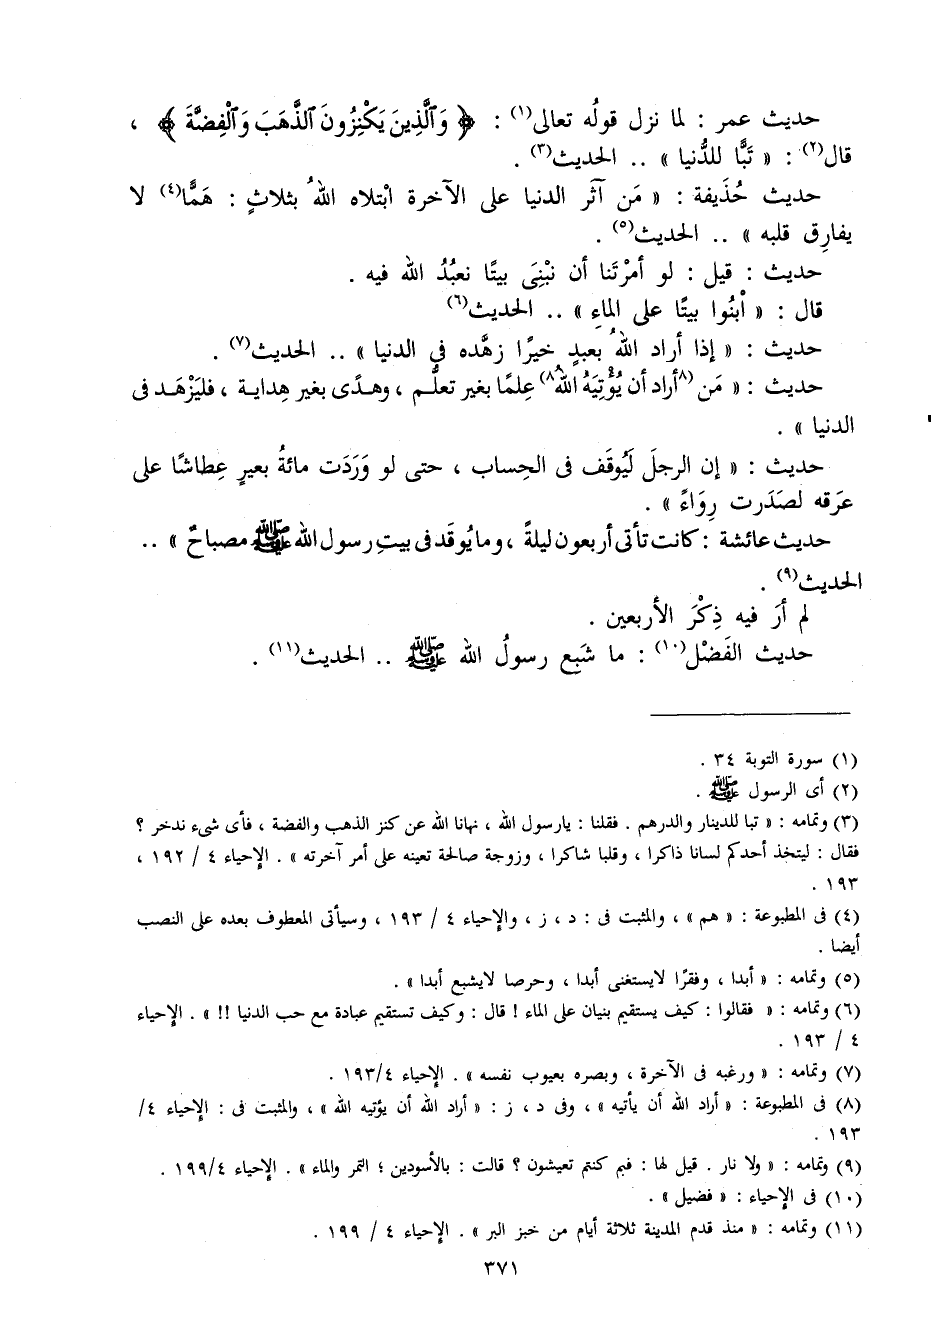 حديث عمر : لما نزل قولُه تعالى(١) : ﴿ وَٱلَّذِينَ يَكْنِزُونَ ٱلذَّهَبَ وَٱلْفِضَّةَ ﴾ ،
قال(٢) : « تَبًّا للدُّنيا » .. الحديث(٣) .
حديث حُذَيفة : « مَن آثَر الدنيا على الآخرة ابْتلاه اللهُ بثلاثٍ : هَمًّا(٤) لا
يفارِق قلبه » .. الحديث(٥) .
حديث : قيل : لو أمرْتَنا أن نبْنِىَ بيتًا نعبُدُ الله فيه .
قال : « ابْنُوا بيتًا على الماءِ » .. الحديث(٦)
حديث : « إذا أراد اللهُ بعبدٍ خيرًا زهَّده فى الدنيا » .. الحديث(٧) .
حديث : « مَن (٨أراد أن يُؤْتِيَهُ اللهُ٨) عِلمًا بغير تعلُّم ، وهدًى بغير هِداية ، فليَزْهَد فى
الدنيا » .
حديث : « إن الرجلَ لَيُوقَف فى الحِساب ، حتى لو وَرَدَت مائةُ بعيرٍ عِطاشًا على
عرَقه لصَدَرت رِوَاءً » .
حديث عائشة : كانت تأتى أربعون ليلةً ، وما يُوقَد فى بيتِ رسول الله ﷺ مصباحٌ » ..
الحديث(٩) .
لم أرَ فيه ذِكْرَ الأربعين .
حديث الفَضْل(١٠) : ما شَبِع رسولُ الله ﷺ .. الحديث(١١) .
(١) سورة التوبة ٣٤ .
(٢) أى الرسول ﷺ .
(٣) وتمامه : « تبا للدينار والدرهم . فقلنا : يارسول الله ، نهانا الله عن كنز الذهب والفضة ، فأى شىء ندخر ؟
فقال : ليتخذ أحدكم لسانا ذاكرا ، وقلبا شاكرا ، وزوجة صالحة تعينه على أمر آخرته » . الإحياء ٤ / ١٩٢ ،
١٩٣ .
(٤) فى المطبوعة : « هم » ، والمثبت فى : د ، ز ، والإحياء ٤ / ١٩٣ ، وسيأتى المعطوف بعده على النصب
أيضا .
(٥) وتمامه : « أبدا ، وفقرًا لايستغنى أبدا ، وحرصا لايشبع أبدا » .
(٦) وتمامه : « فقالوا : كيف يستقيم بنيان على الماء ! قال : وكيف تستقيم عبادة مع حب الدنيا !! » . الإحياء
٤ / ١٩٣ .
(٧) وتمامه : « ورغبه فى الآخرة ، وبصره بعيوب نفسه » . الإحياء ١٩٣/٤ .
(٨) فى المطبوعة : « أراد الله أن يأتيه » ، وفى د ، ز : « أراد الله أن يؤتيه الله » ، والمثبت فى : الإحياء ٤/
١٩٣ .
(٩) وتمامه : « ولا نار . قيل لها : فبم كنتم تعيشون ؟ قالت : بالأسودين ؛ التمر والماء » . الإحياء ١٩٩/٤ .
(١٠) فى الإحياء : « فضيل » .
(١١) وتمامه : « منذ قدم المدينة ثلاثة أيام من خبز البر » . الإحياء ٤ / ١٩٩ .
٣٧١